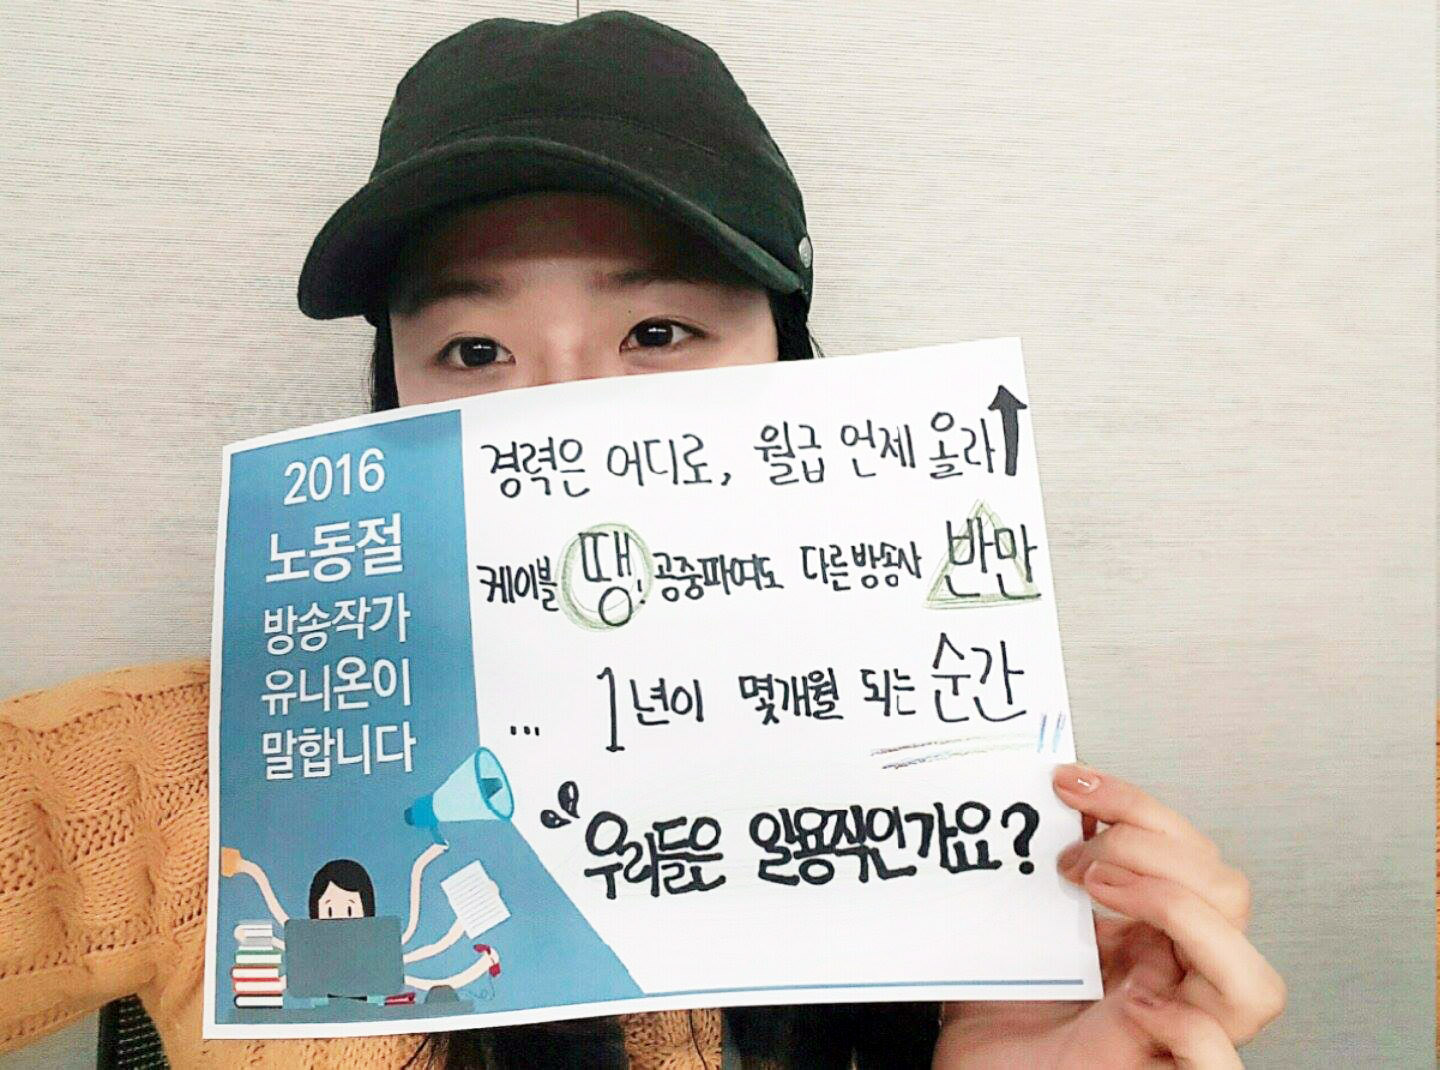 2016
노동절
방송작가
유니온이
말합니다
경력은 어디로, 월급 언제 올라↑
케이블 땡! 공중파여도 다른방송사 반만
... 1년이 몇개월 되는 순간"
우리들은 일용직인가요?